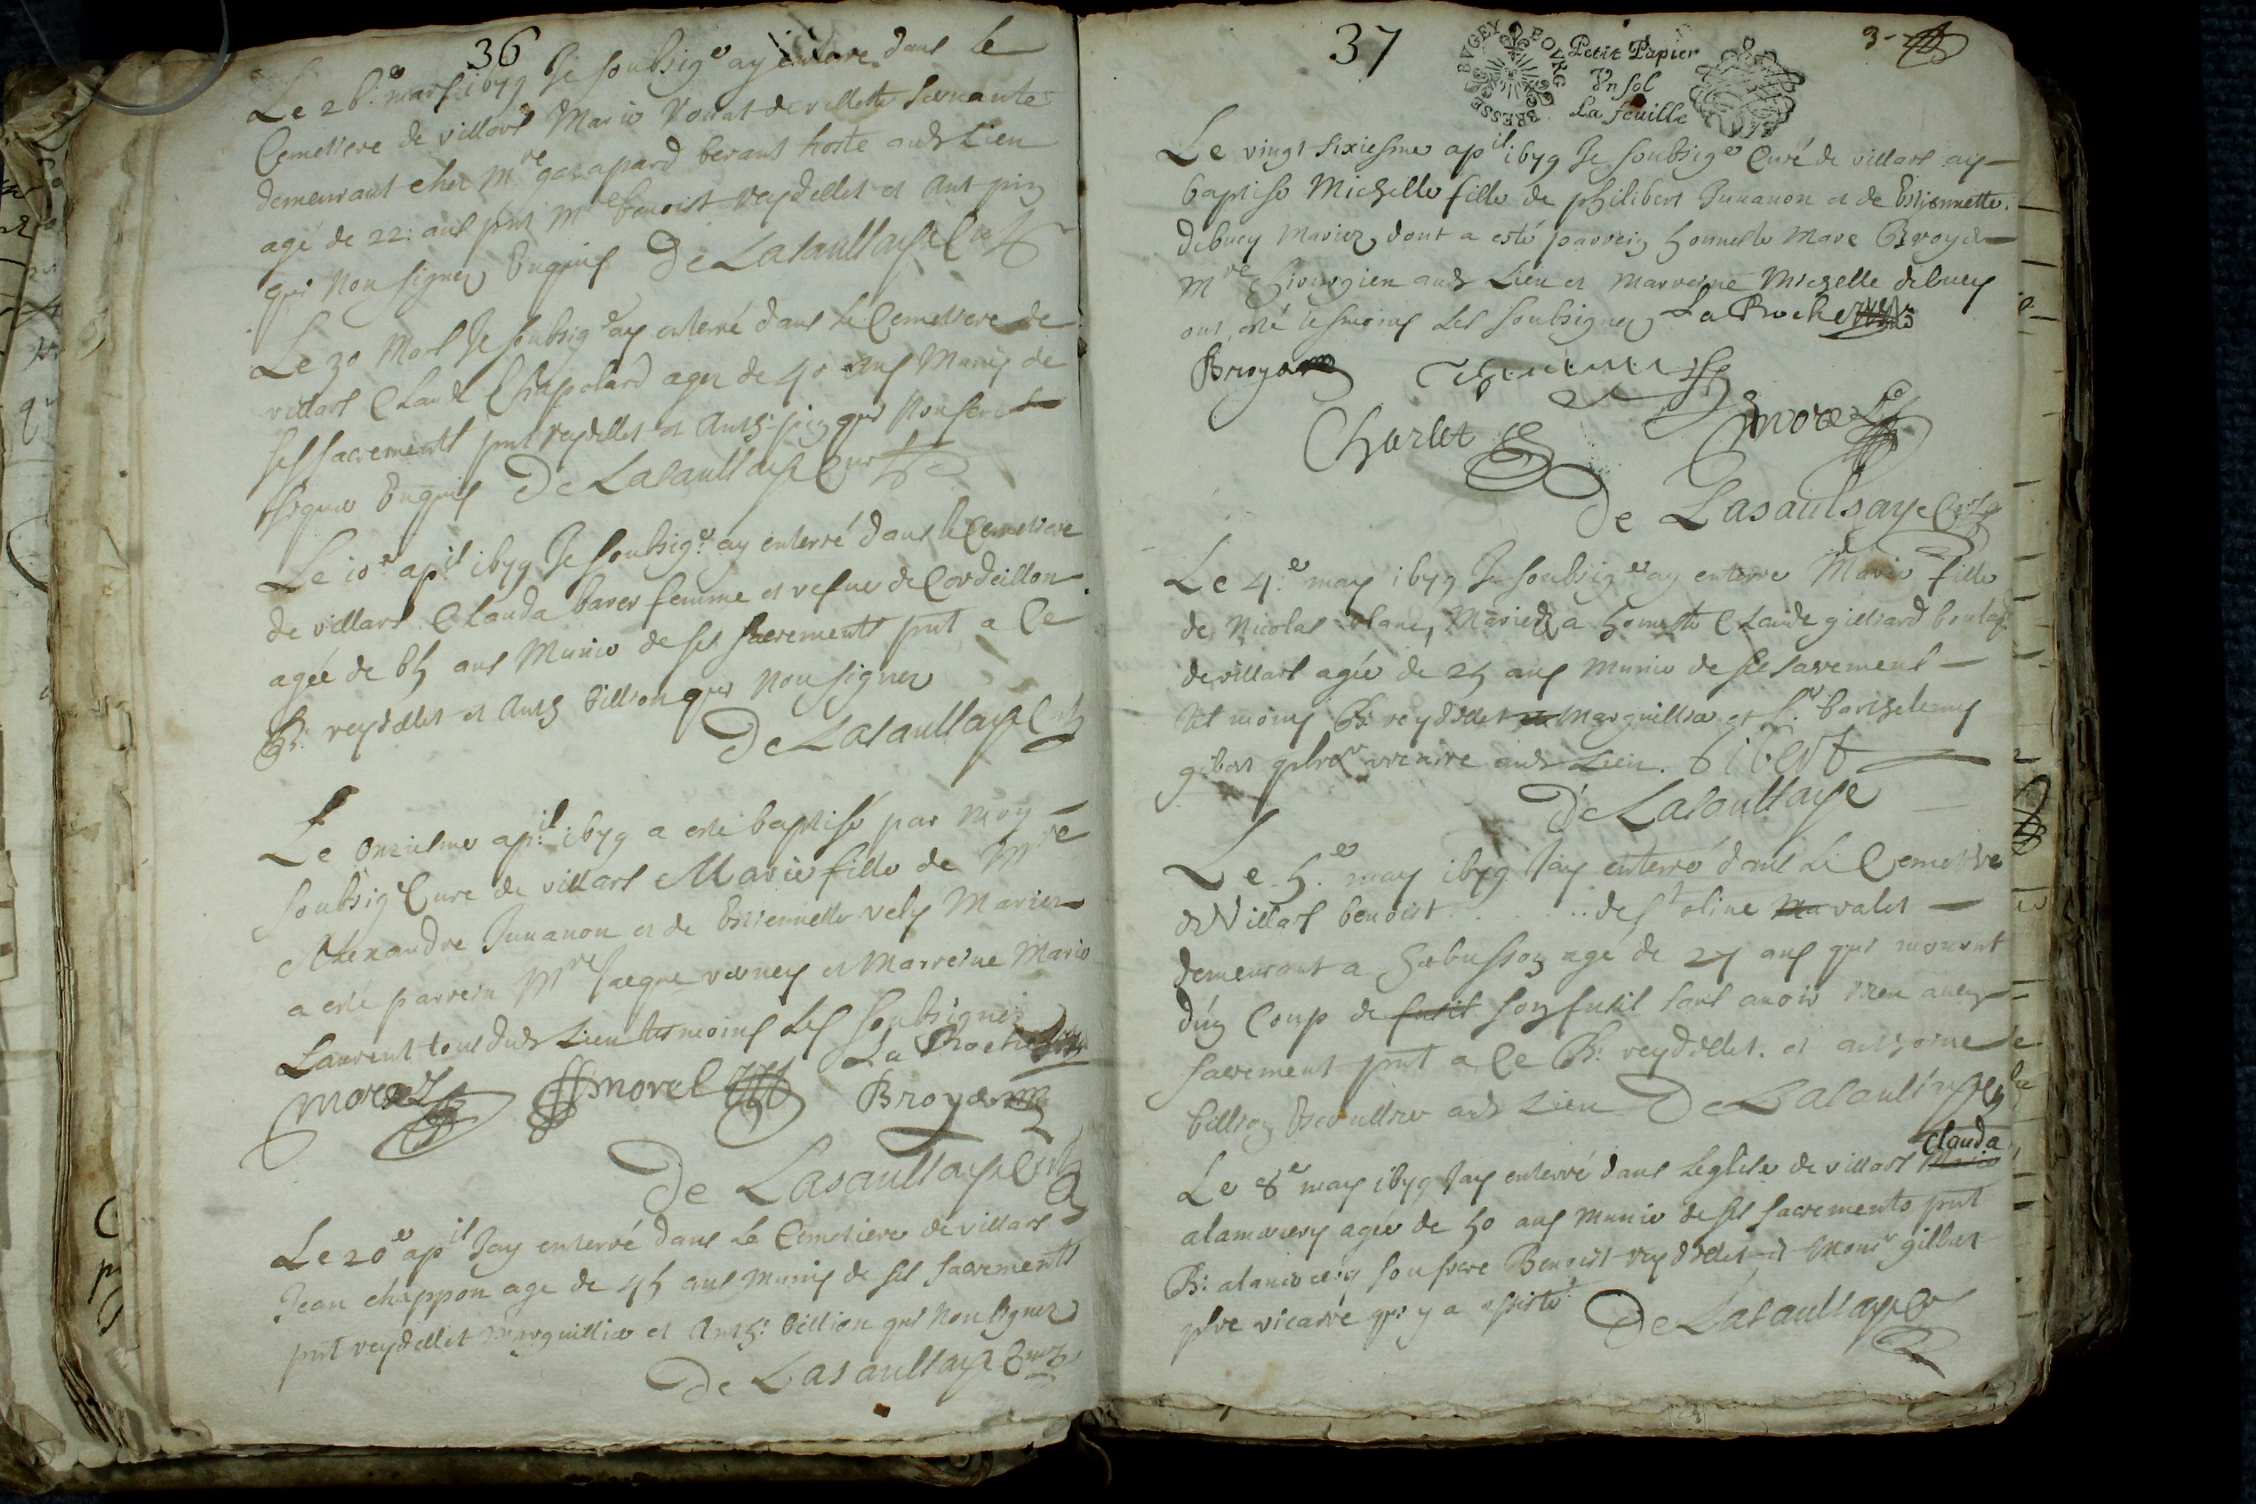 36
Le 26.e mars 1679 Je soubsigé ay enterré dans le
Cemetiere de villars Marie de villette servante
demeurant chez Mre gaspard beraut hoste audt Lieu
agé de 22 ans pnt Mre benoist Reydellet et Ant pin
qui Non signez Enquis De Lasaulsaye Curé
Le 30 Mars Je soubsigé ay enterré dans le Cemetiere de
villars Claude Chapolard agez de 40 ans Muny de
ses sacrements pnt reydellet et Anth: pin qui Non
signé Enquis De Lasaulsaye Curé
Le 10.e apil 1679 Je soubsigé ay enterré dans le Cemetiere
de villars Clauda baret femme et vefue de Cordeillon
agée de 65 ans Munie de ses sacrements pnt a Ce
B: reydellet et Anth billion qui Non signez
De Lasaulsaye Curé
Le Onziesme apil 1679 a esté baptisé par Moy
soubsigé Curé de villars Marie fille de Mre
Alexandre Juuanon et de Estiennette vely Mariez
a esté parrein Mre Jacque verney et Marreine Marie
Laurent tous dudt Lieu tesmoins Les soubsignés
La Roche
morel morel Broyer
De Lasaulsaye Curé
Le 20e apil Jay enterré dans Le Cemetiere de villars
Jean chappon age de 45 ans Muny de ses sacrements
pnt reydellet Marguillier et Anth: billion qui Non signez
De Lasaulsaye Curé
37
BRESSE BVGEY BOVRG
Petit Papier
Vn sol
La feuille
3
Le vingt sixiesme apil 1679 Je soubsigé Curé de villars ay
baptisé Michelle fille de philibert Juuanon et de Estiennette
debuey Mariez, dont a esté parrein honneste Marc Broyer
Mre Chirurgien audt Lieu et Marreine Michelle debuey
ont esté tesmoins Les soubsignez La Roche
Broyer
Charlet morel
De Lasaulsaye Curé
Le 4.e may 1679 Je soubsigé ay enterré Marie fille
de Nicolas blanc, Mariée a honneste Claude gilliard
de villars agée de 25 ans Munie de ses sacrements
tesmoins B: reydellet Marguillier et Sr barthelemy
gibert pbre vicaire audt Lieu. Gibert
De Lasaulsaye
Le 5.e may 1679 Jay enterré dans Le Cemetiere
de Villars benoist ...... de St oline valet
demeurant a agé de 27 ans qui mourut
d'un Coup de fusil son fusil sans auoir receu aucun
sacrement pnt a Ce B: reydellet. et anthoine
billion audt Lieu De Lasaulsaye
Clauda
Le 8e may 1679 Jay enterré dans Leglise de villars Marie
alamercery agée de 50 ans Munie de ses sacrements pnt
B: alamercery son frere Benoist reydellet et Monsr gilbert
pbre vicaire qui y a assisté De Lasaulsaye C